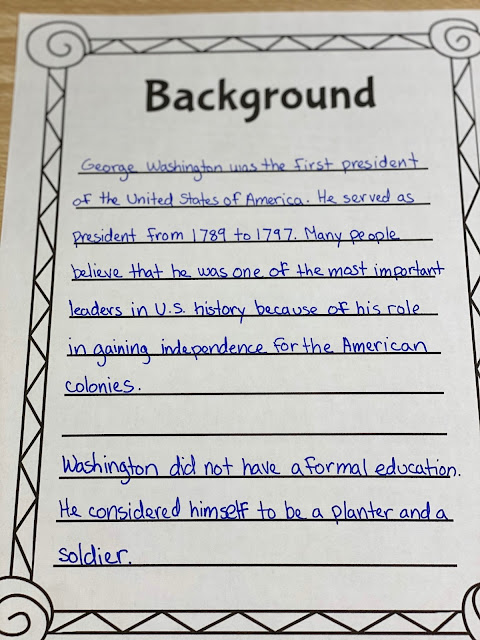 Background
George Washington was the first president
of the United States of America. He served as
president from 1789 to 1797. Many people
believe that he was one of the most important
leaders in U.S. history because of his role
in gaining independence for the American
colonies.
Washington did not have a formal education.
He considered himself to be a planter and a
soldier.